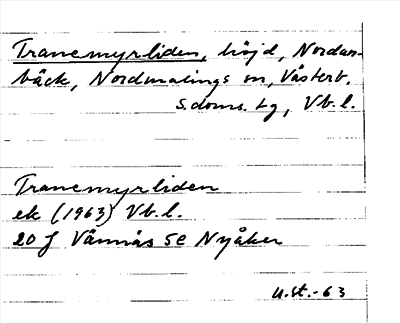 Tranemyrliden, höjd, Nordan-
bäck, Nordmalings sn, Västerb.
s.doms. tg, Vb.l.
Tranemyrliden
ek (1963) Vb.l.
20 J Vännäs SE Nyåker
U.St.-63